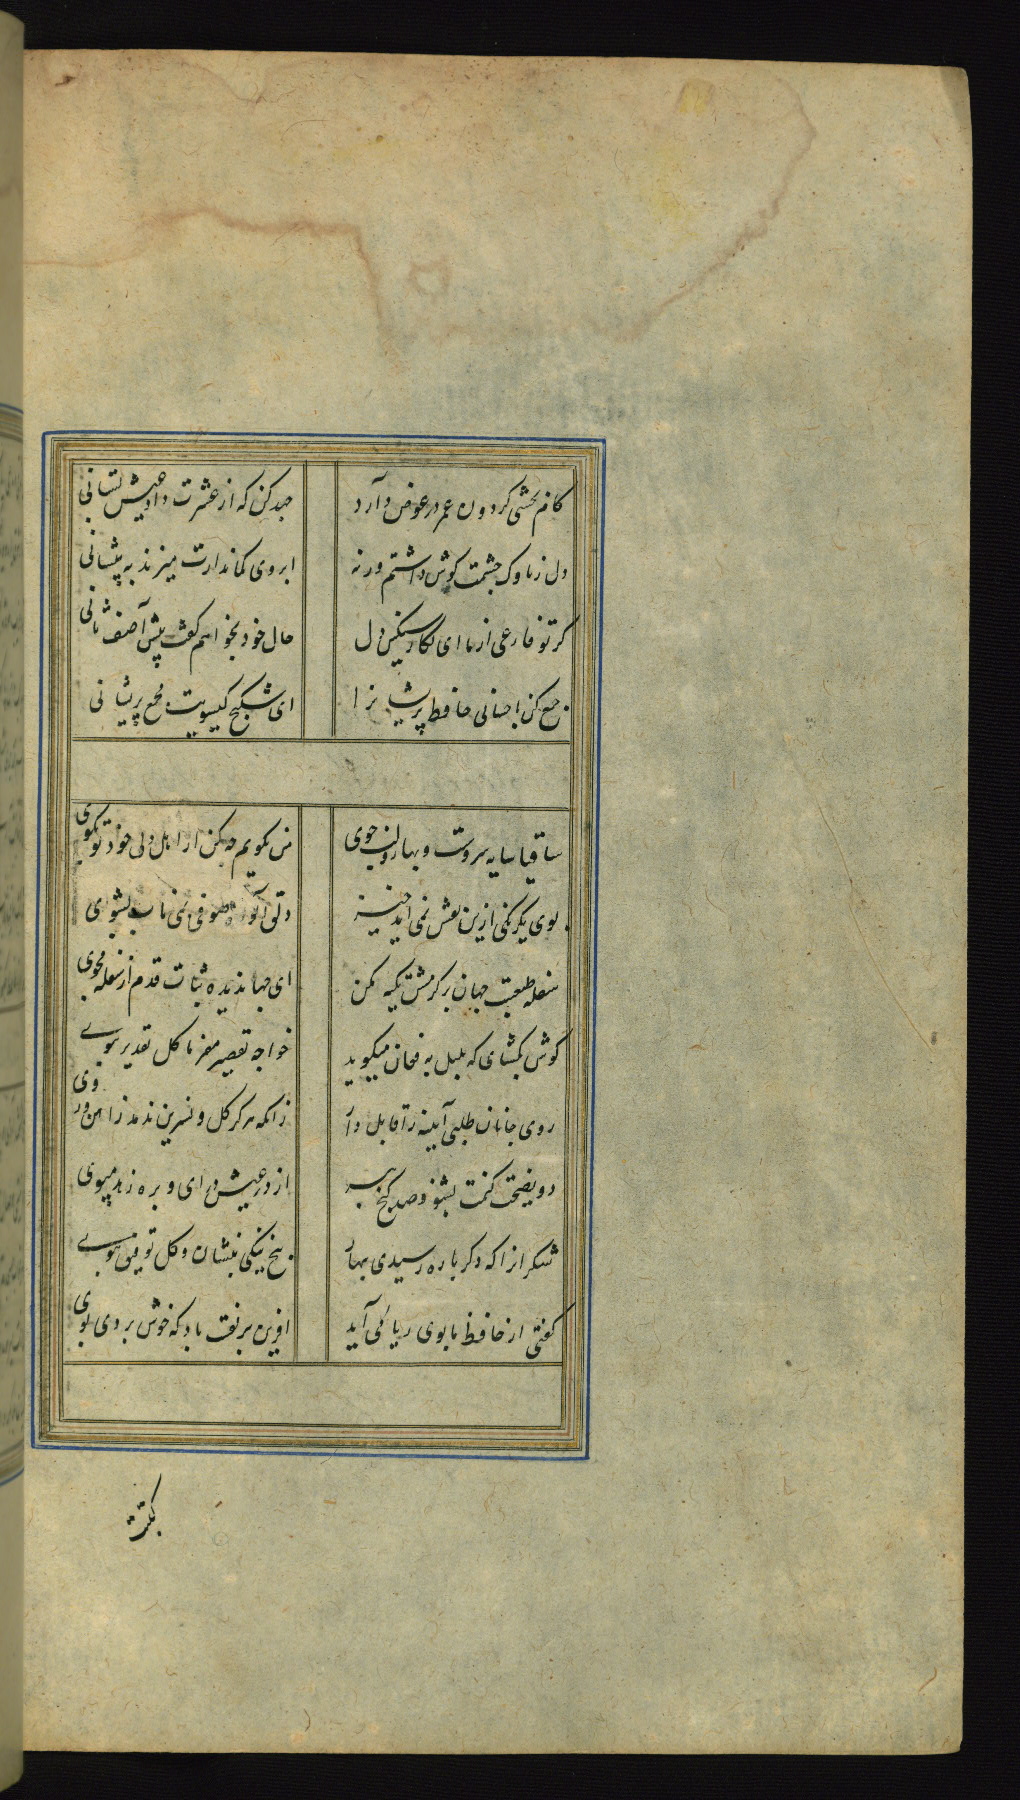 کام بخشی کردون عمر در عوض دارد جهد کن که از عشرت داد عیش بستانی
دل ز ناوک چشمت کوش داشتم ورنه ابروی کماندارت میزند به پیشانی
کر تو فارغی از ما ای نکار سنکین دل حال خود بخواهم کفت پیش آصف ثانی
جمع کن باحسانی حافظ پریشانرا ای شکنج کیسویت مجمع پریشانی
ساقیا سایه ابرست و بهار و لب جوی من نکویم چه کن ار اهل دلی خود تو بکوی
بوی یکرنکی ازین نقش نمی آید خیز دلق آلوده صوفی بمی ناب بشوی
سفله طبعست جهان بر کرمش تکیه مکن ای جهاندیده ثبات قدم از سفله مجوی
کوش بکشای که بلبل به فغان میکوید خواجه تقصیر مفرما کل توفیق ببوی
روی جانان طلبی آینه را قابل دار زانکه هرکز کل و نسرین ندمد ز آهن و روی
دو نصیحت کنمت بشنو و صد کنج ببر از در عیش در آی و بره زهد مپوی
شکر آنرا که دکر باره رسیدی ببهار بیخ نیکی بنشان و کل توفیق ببوی
کفتی از حافظ ما بوی ریا می آید آفرین بر نفست باد که خوش بردی بوی